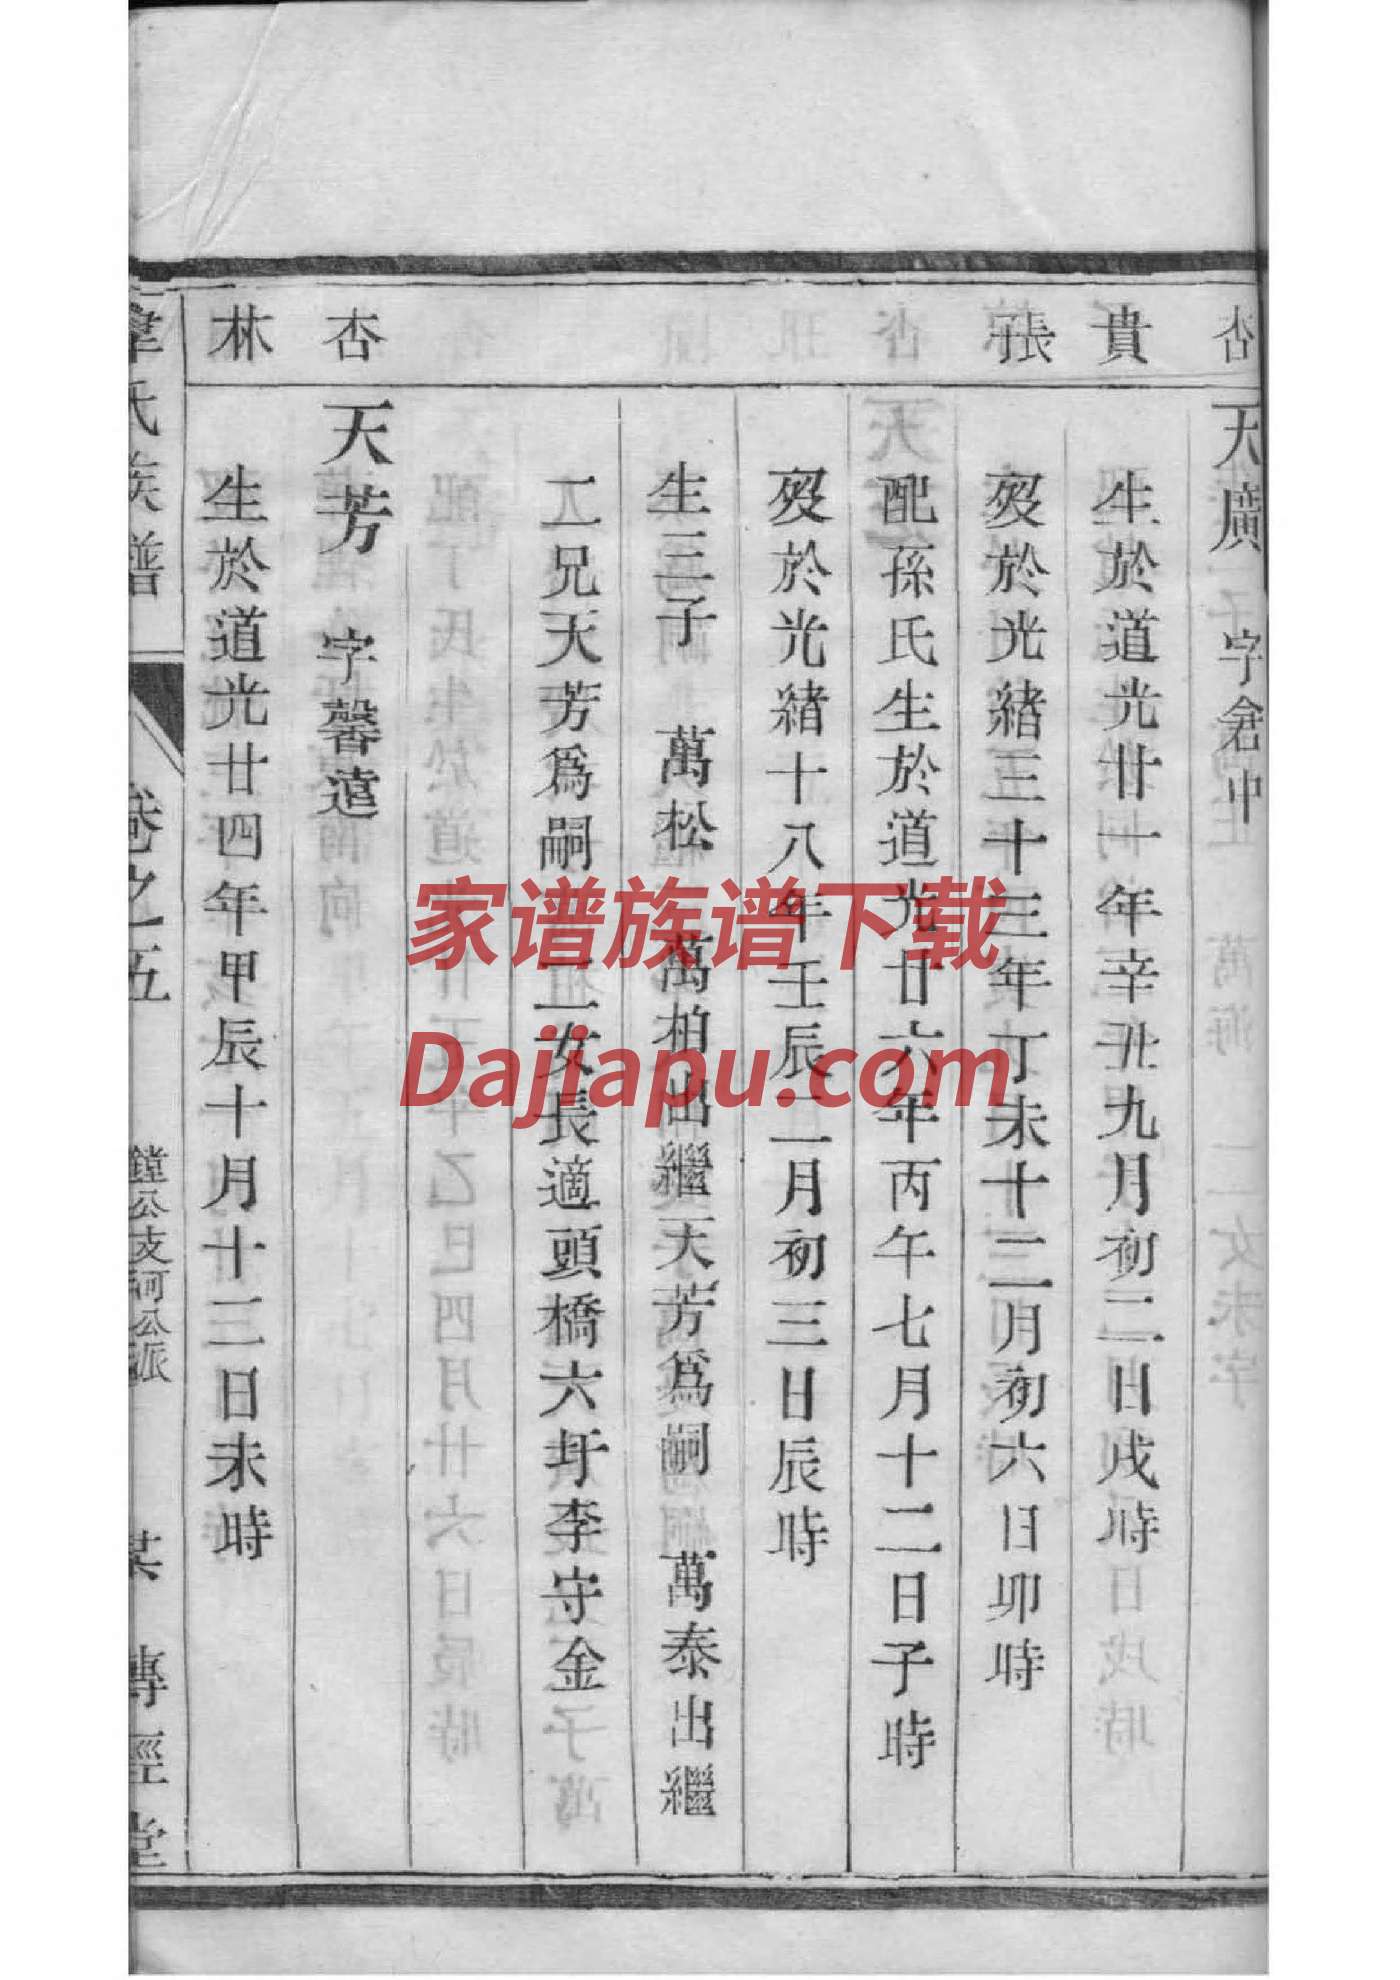 杏 天廣 字倉中
貴 生於道光廿一年辛丑九月初二日戌時
張 歿於光緒三十三年丁未十二月初六日卯時
配孫氏生於道光廿六年丙午七月十二日子時
歿於光緒十八年壬辰二月初三日辰時
生三子 萬松 萬柏出繼天芳爲嗣 萬泰出繼
二兄天芳爲嗣 二女長適頭橋六圩李守金
杏 天芳 字馨遠
林 生於道光廿四年甲辰十月十三日未時
氏族譜 卷之五 鏜公支河公派 傳經堂
家谱族谱下载
Dajiapu.com